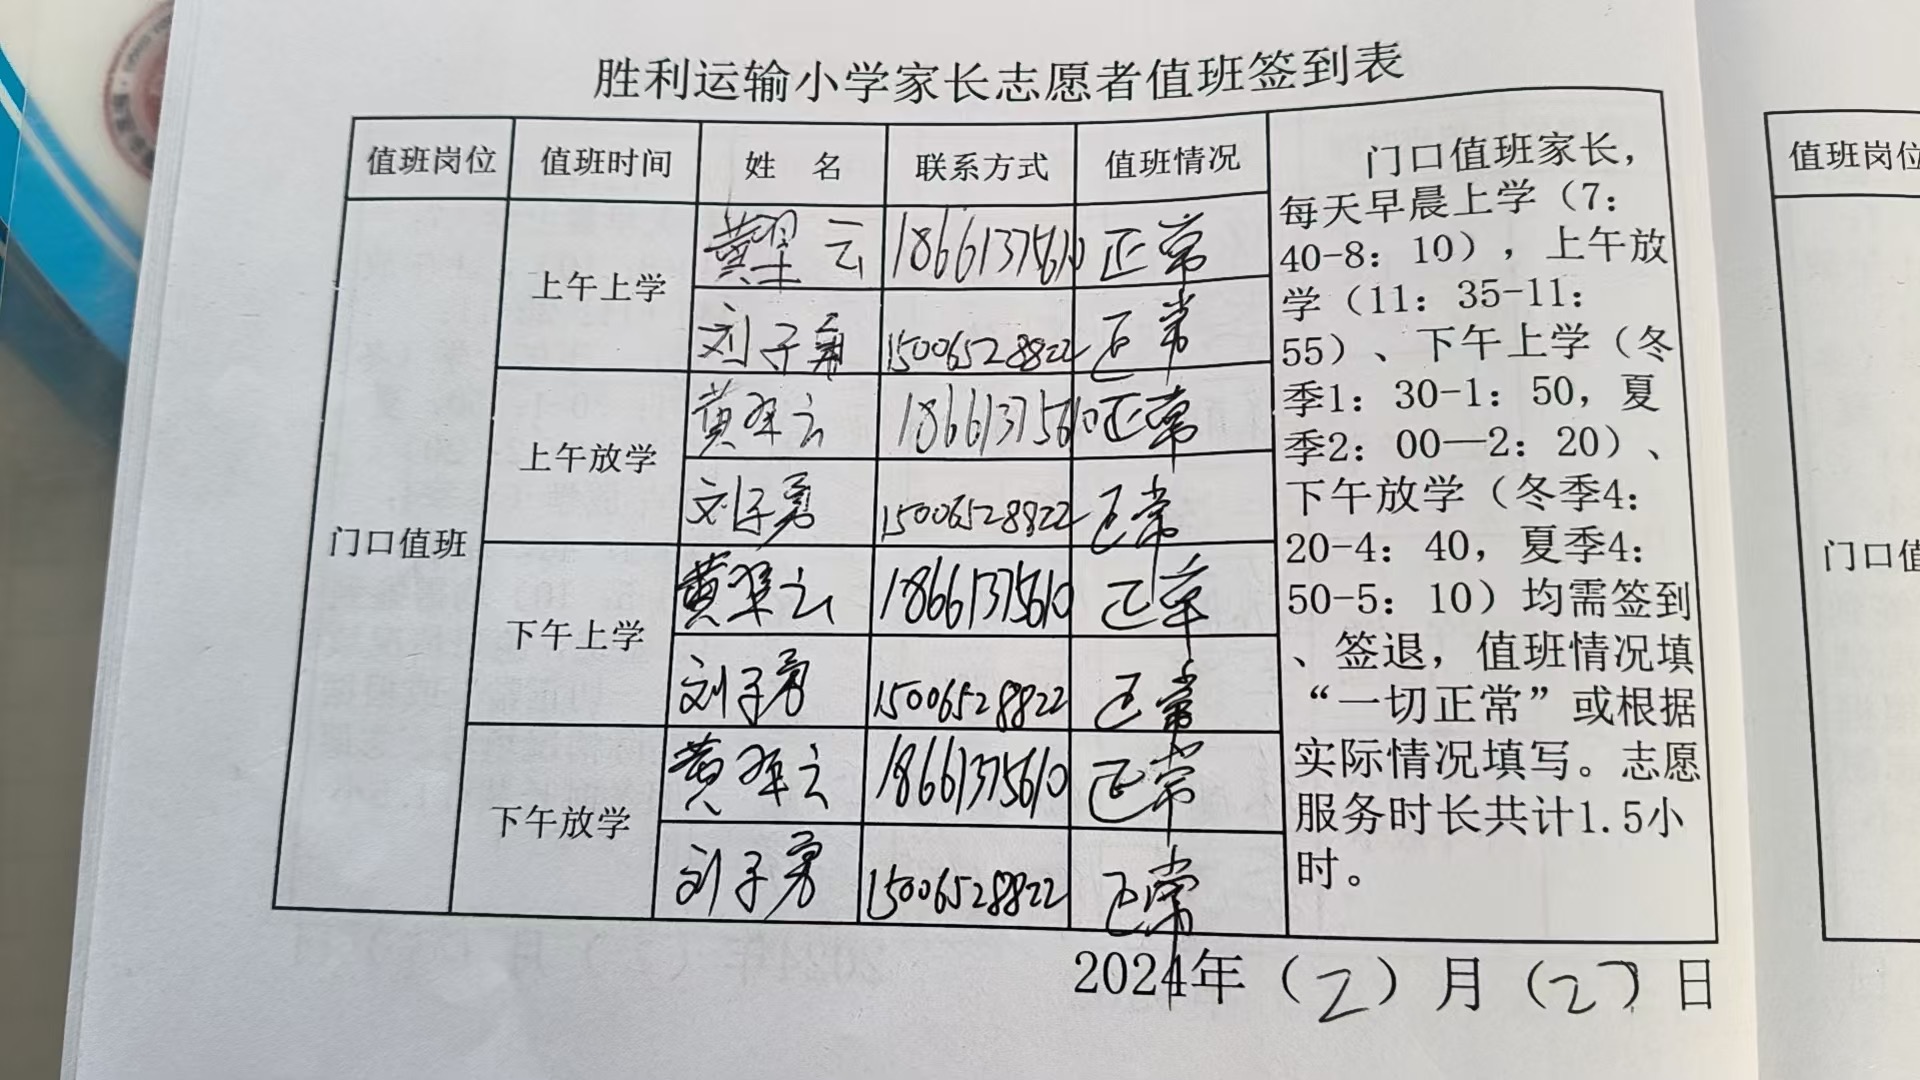 胜利运输小学家长志愿者值班签到表
值班岗位 值班时间 姓 名 联系方式 值班情况
门口值班
上午上学
黄翠云 18661375610 正常
刘子勇 15006528822 正常
上午放学
黄翠云 18661375610 正常
刘子勇 15006528822 正常
下午上学
黄翠云 18661375610 正常
刘子勇 15006528822 正常
下午放学
黄翠云 18661375610 正常
刘子勇 15006528822 正常
门口值班家长，
每天早晨上学（7：
40-8：10），上午放
学（11：35-11：
55）、下午上学（冬
季1：30-1：50，夏
季2：00—2：20）、
下午放学（冬季4：
20-4：40，夏季4：
50-5：10）均需签到
、签退，值班情况填
“一切正常”或根据
实际情况填写。志愿
服务时长共计1.5小
时。
2024年（2）月（27）日
值班岗位
门口值